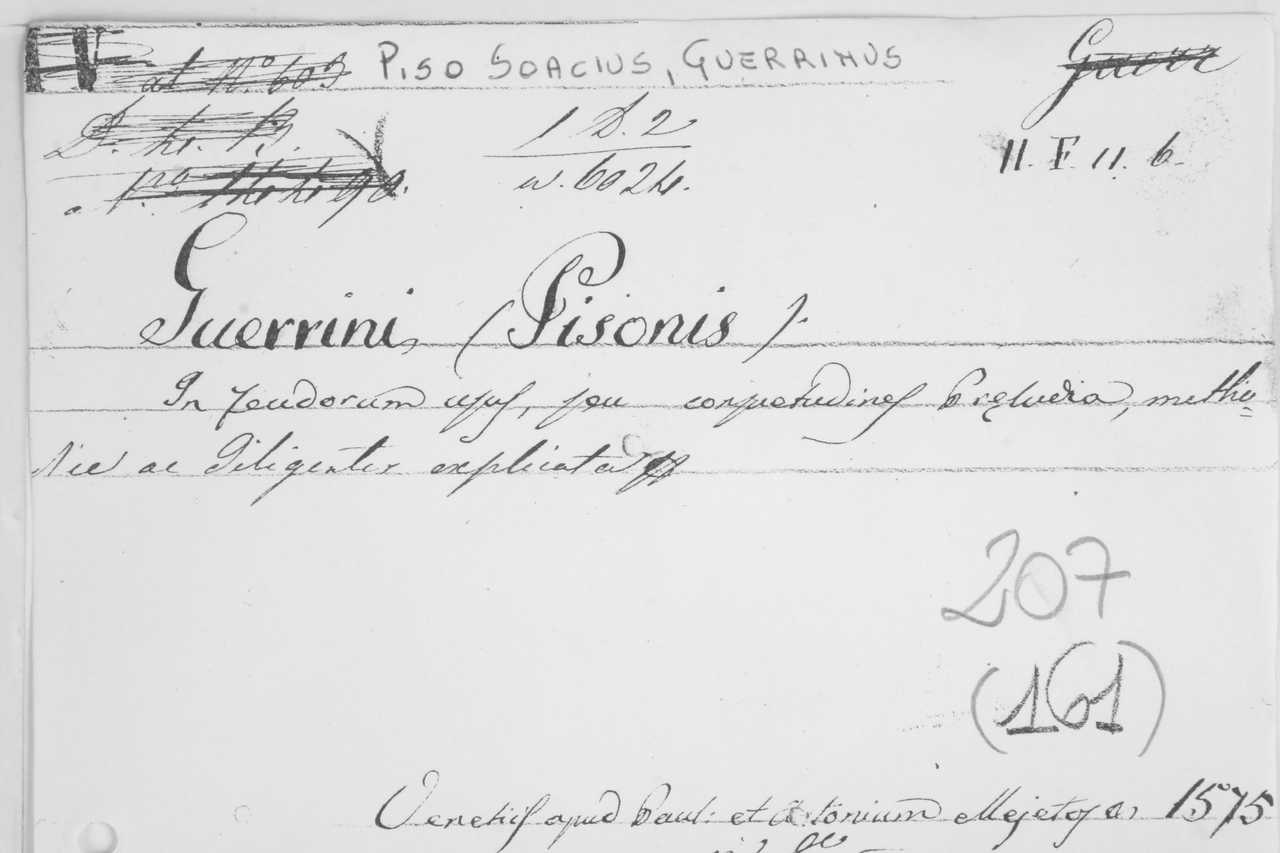 at N.o 603 PISO SOACIUS, GUERRINUS Guerr
D. 2
n. 6024. II. F. 11. 6.
Guerrini (Pisonis).
In feudorum usus, seu consuetudines Preludia, metho=
dice ac diligenter explicata
207
(161)
Venetiis apud Paul: et Antonium Mejetos 1575